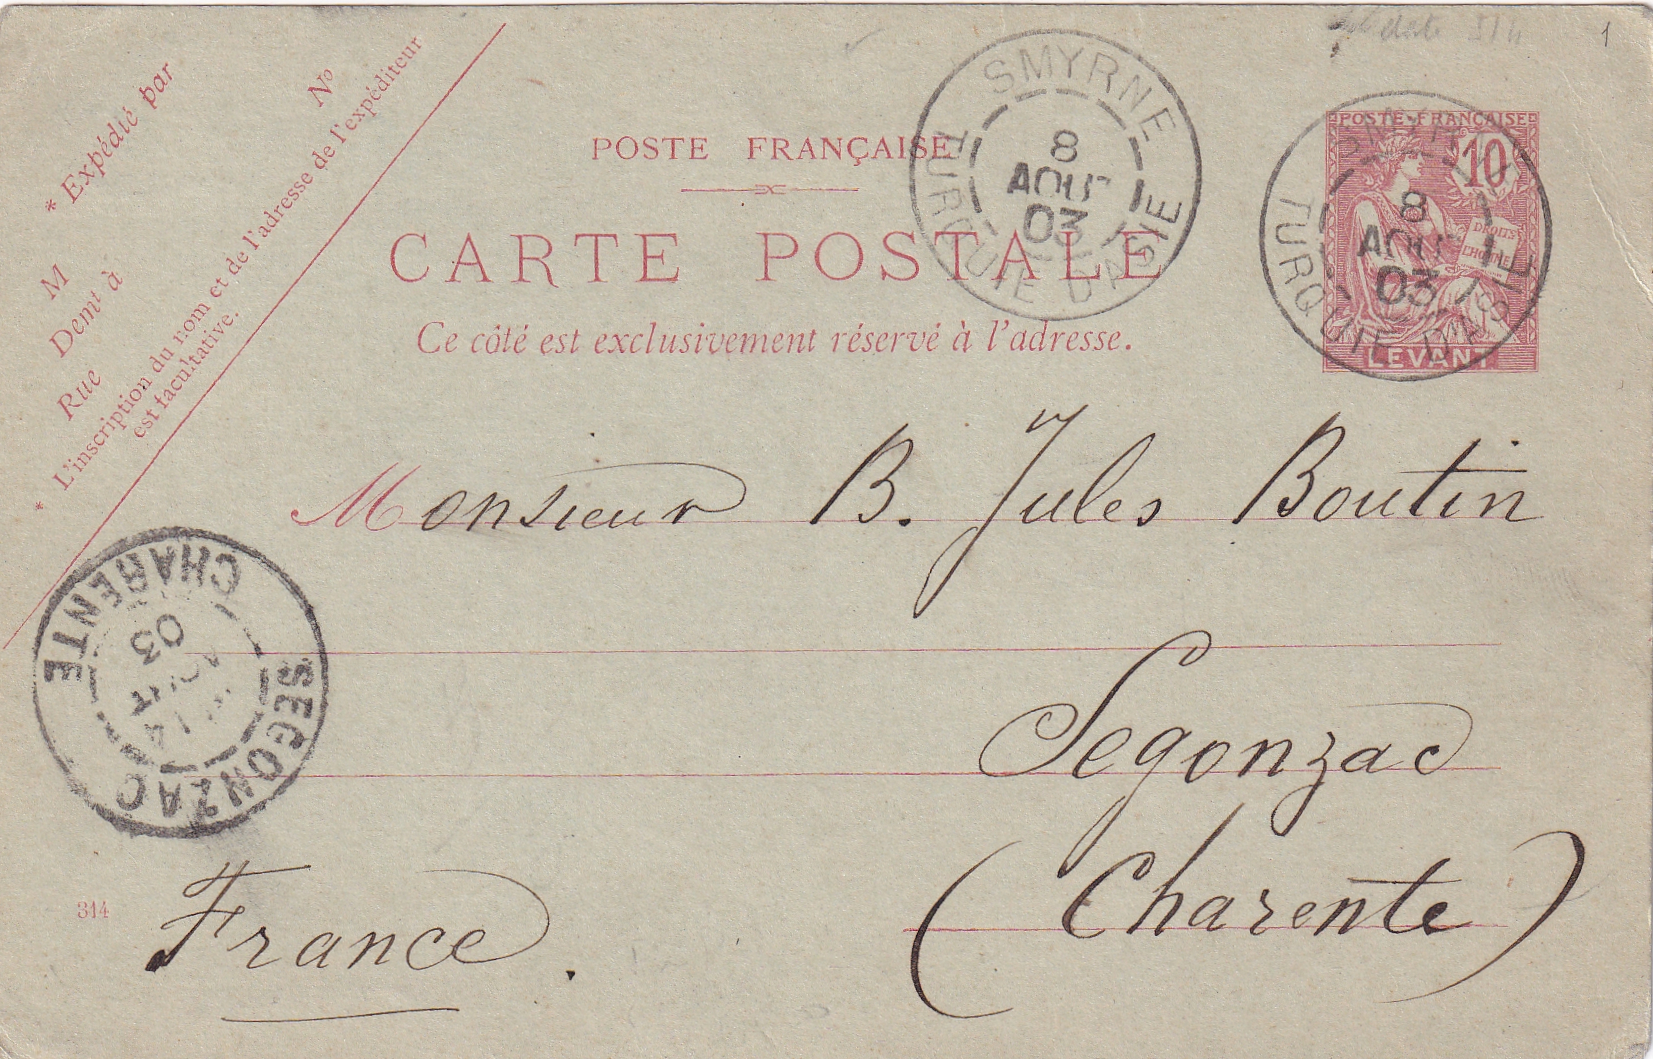 date
1
* Expédié par
M
Demt à
Rue No
* L'inscription du nom et de l'adresse de l'expéditeur
est facultative.
POSTE FRANÇAISE
CARTE POSTALE
Ce côté est exclusivement réservé à l'adresse.
SMYRNE
8
AOUT
03
TURQUIE D'ASIE
POSTE FRANÇAISE
10
DROITS
DE
L'HOMME
LEVANT
SMYRNE
8
AOUT
03
TURQUIE D'ASIE
Monsieur B. Jules Boutin
Segonzac
(Charente)
France.
SEGONZAC
14
AOUT
03
CHARENTE
314